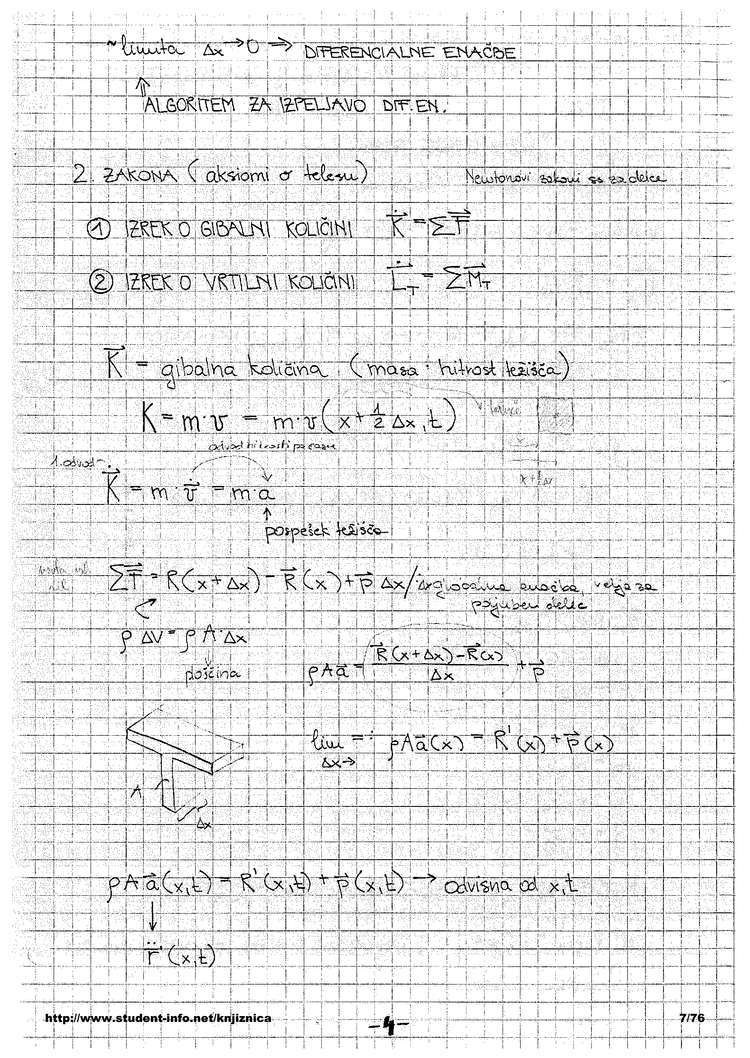 ~ limita Δx → 0 ⇒ DIFERENCIALNE ENAČBE
⇑
ALGORITEM ZA IZPELJAVO DIF. EN.
2. ZAKONA (aksiomi o telesu) Newtonovi zakoni so za delce
① IZREK O GIBALNI KOLIČINI K⃗̇ = ΣF⃗
② IZREK O VRTILNI KOLIČINI L⃗̇_T = ΣM⃗_T
K⃗ = gibalna količina (masa · hitrost težišča)
K = m·v = m·v(x + ½ Δx, t)
x
x + ½Δx
odvod hitrosti po času
1. odvod K⃗̇ = m·v⃗̇ = m·a
↑
pospešek težišča
ΣF⃗ = R(x+Δx) − R⃗(x) + p⃗ Δx /:Δx enačba, velja za
poljuben delec
ρ ΔV = ρ A·Δx
ploščina
ρAa⃗ = (R⃗(x+Δx) − R⃗(x))/Δx + p⃗
lim Δx→ =: ρAa⃗(x) = R'(x) + p⃗(x)
A
Δx
ρAa⃗(x,t) = R'(x,t) + p⃗(x,t) → odvisna od x,t
↓
r⃗̈(x,t)
http://www.student-info.net/knjiznica
-4-
7/76